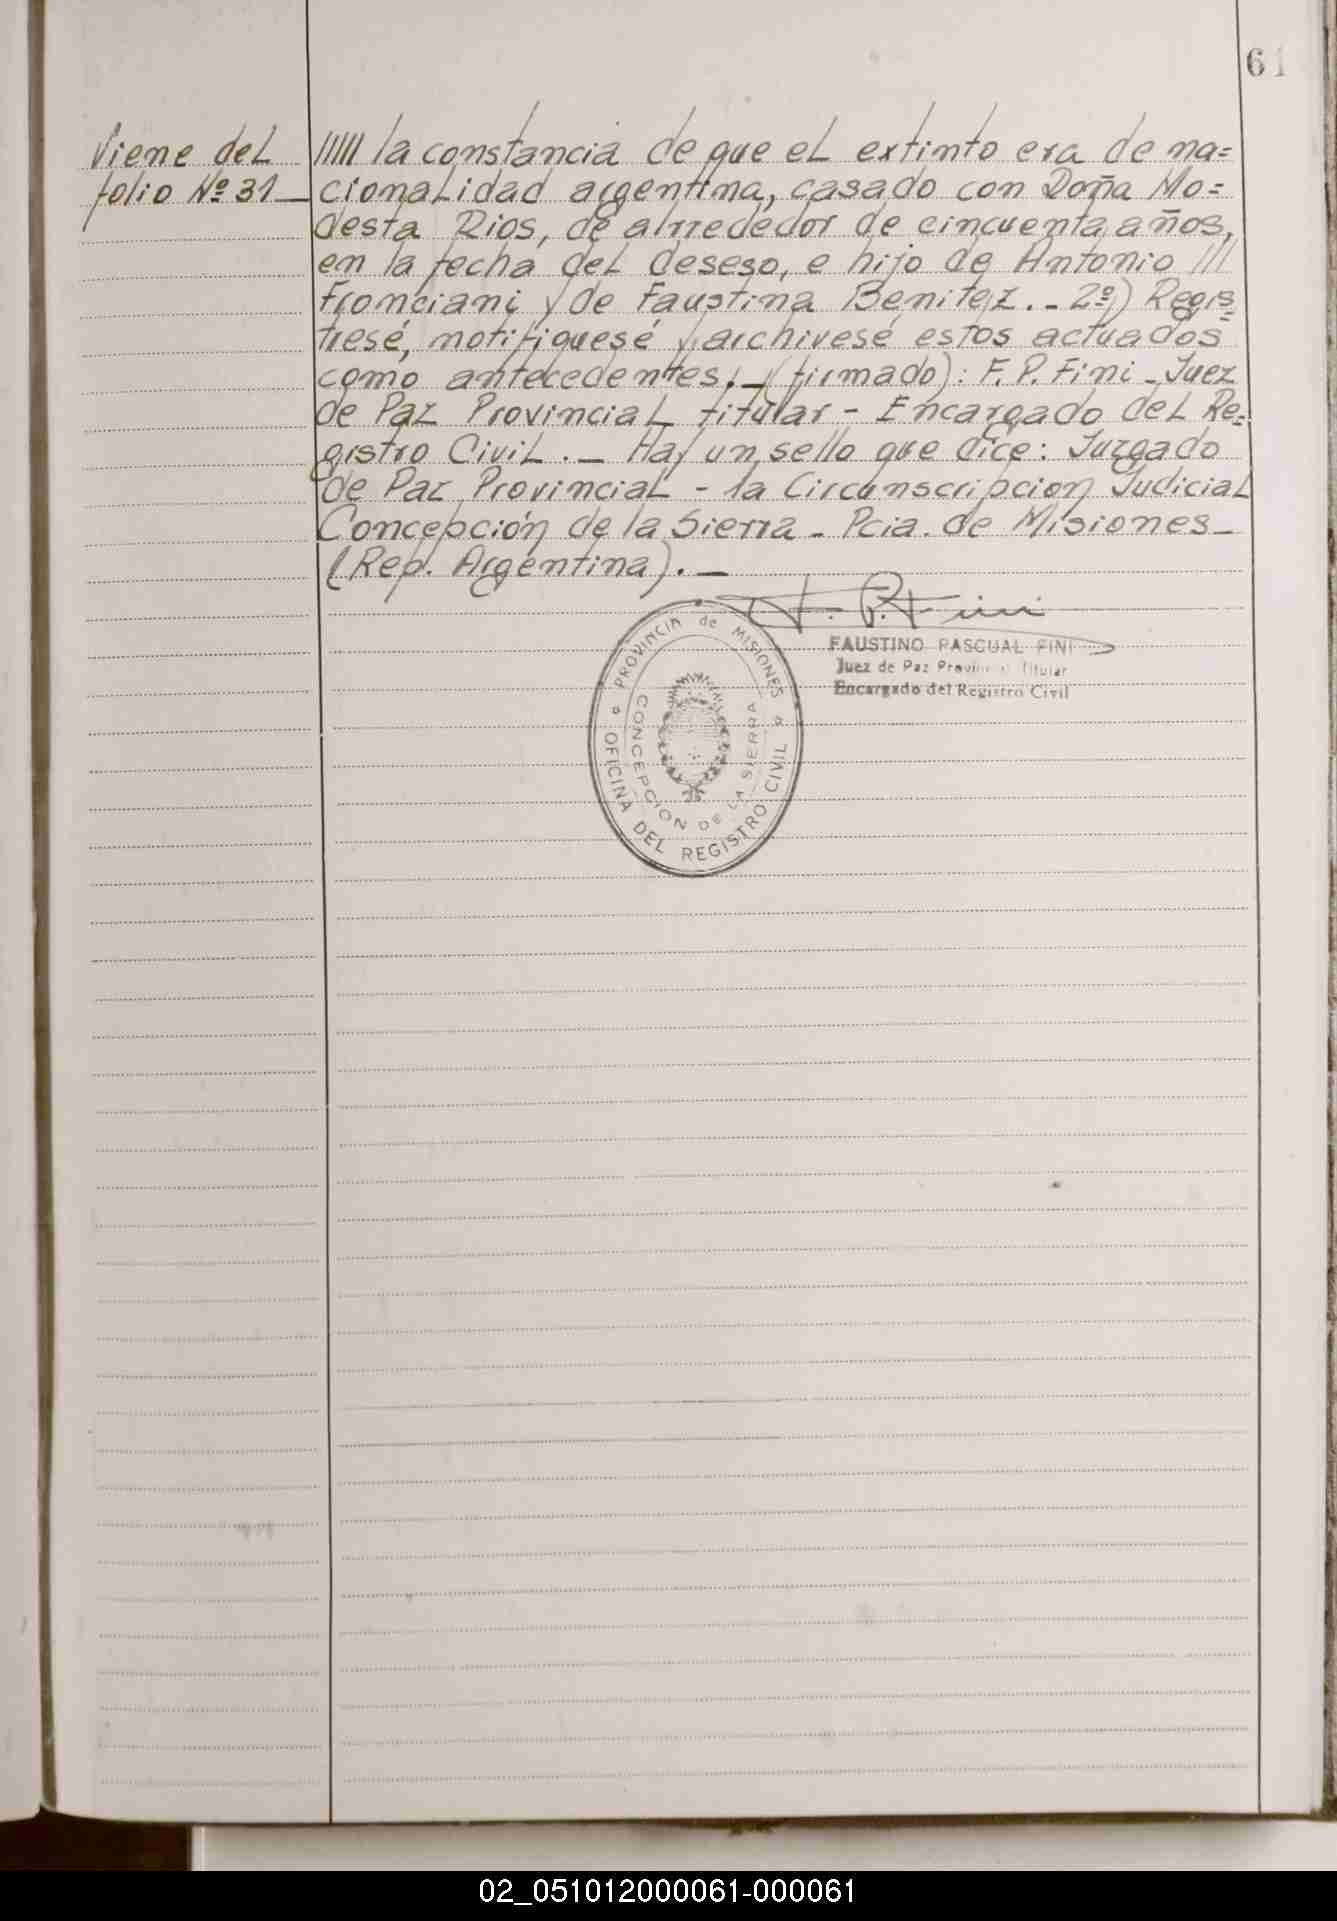 61
Viene del
folio Nº 31_
///// la constancia de que el extinto era de na=
cionalidad argentina, casado con Doña Mo=
desta Rios, de alrrededor de cincuenta años,
en la fecha del deseso, e hijo de Antonio ///
Fronciani y de Faustina Benitez._ 2º) Regis=
tresé, notifiquesé y archivesé estos actuados
como antecedentes._ (firmado): F. P. Fini - Juez
de Paz Provincial titular - Encargado del Re=
gistro Civil._ Hay un sello que dice: Juzgado
de Paz Provincial - 1a Circunscripcion Judicial
Concepción de la Sierra - Pcia. de Misiones_
(Rep. Argentina)._
F. P. Fini
FAUSTINO PASCUAL FINI
Juez de Paz Provincial Titular
Encargado del Registro Civil
PROVINCIA de MISIONES
OFICINA DEL REGISTRO CIVIL
CONCEPCION DE LA SIERRA
02_051012000061-000061